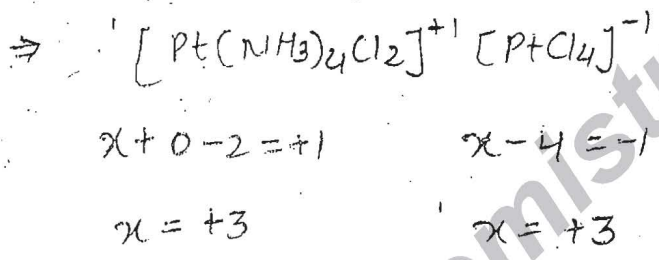 ⇒ [Pt(NH3)4Cl2]+1 [PtCl4]-1
x+0-2=+1 x-4=-1
x=+3 x=+3